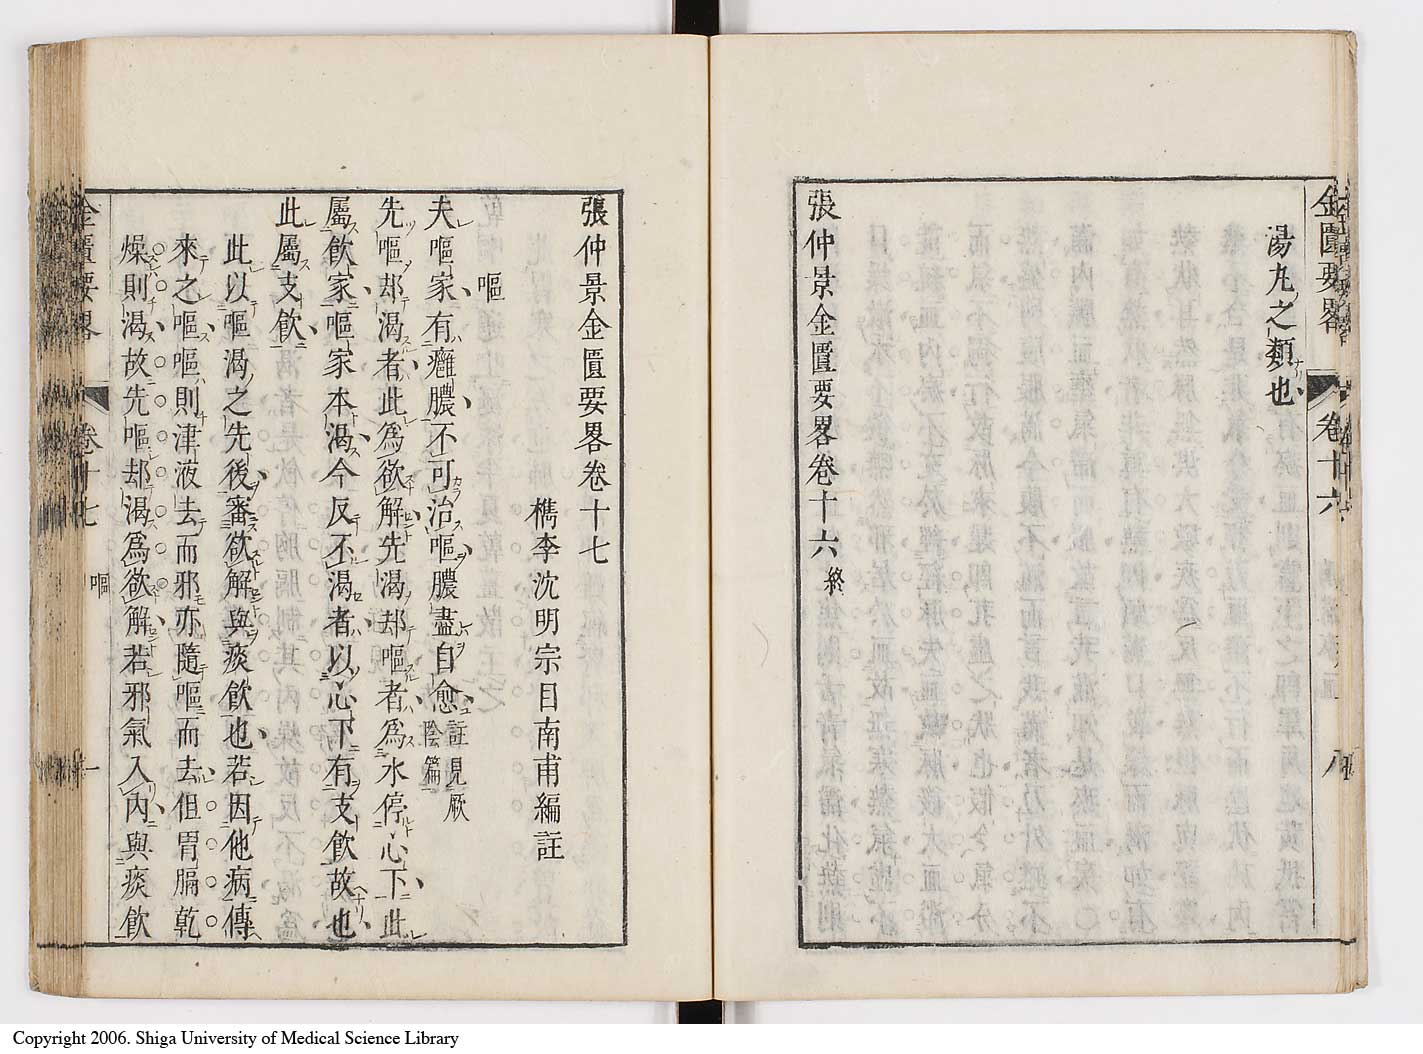 金匱要畧 卷十六 八
湯丸之類也
張仲景金匱要畧卷十六終
張仲景金匱要畧卷十七
檇李沈明宗目南甫編註
嘔
夫嘔家有癰膿不可治嘔膿盡自愈註見厥陰篇
先嘔却渴者此爲欲解先渴却嘔者爲水停心下此
屬飲家嘔家本渴今反不渴者以心下有支飲故也
此屬支飲
此以嘔渴之先後審欲解與痰飲也若因他病傳
來之嘔嘔則津液去而邪亦隨嘔而去但胃膈乾
燥則渴故先嘔却渴爲欲解若邪氣入內與痰飲
金匱要畧 卷十七 嘔 一
Copyright 2006. Shiga University of Medical Science Library